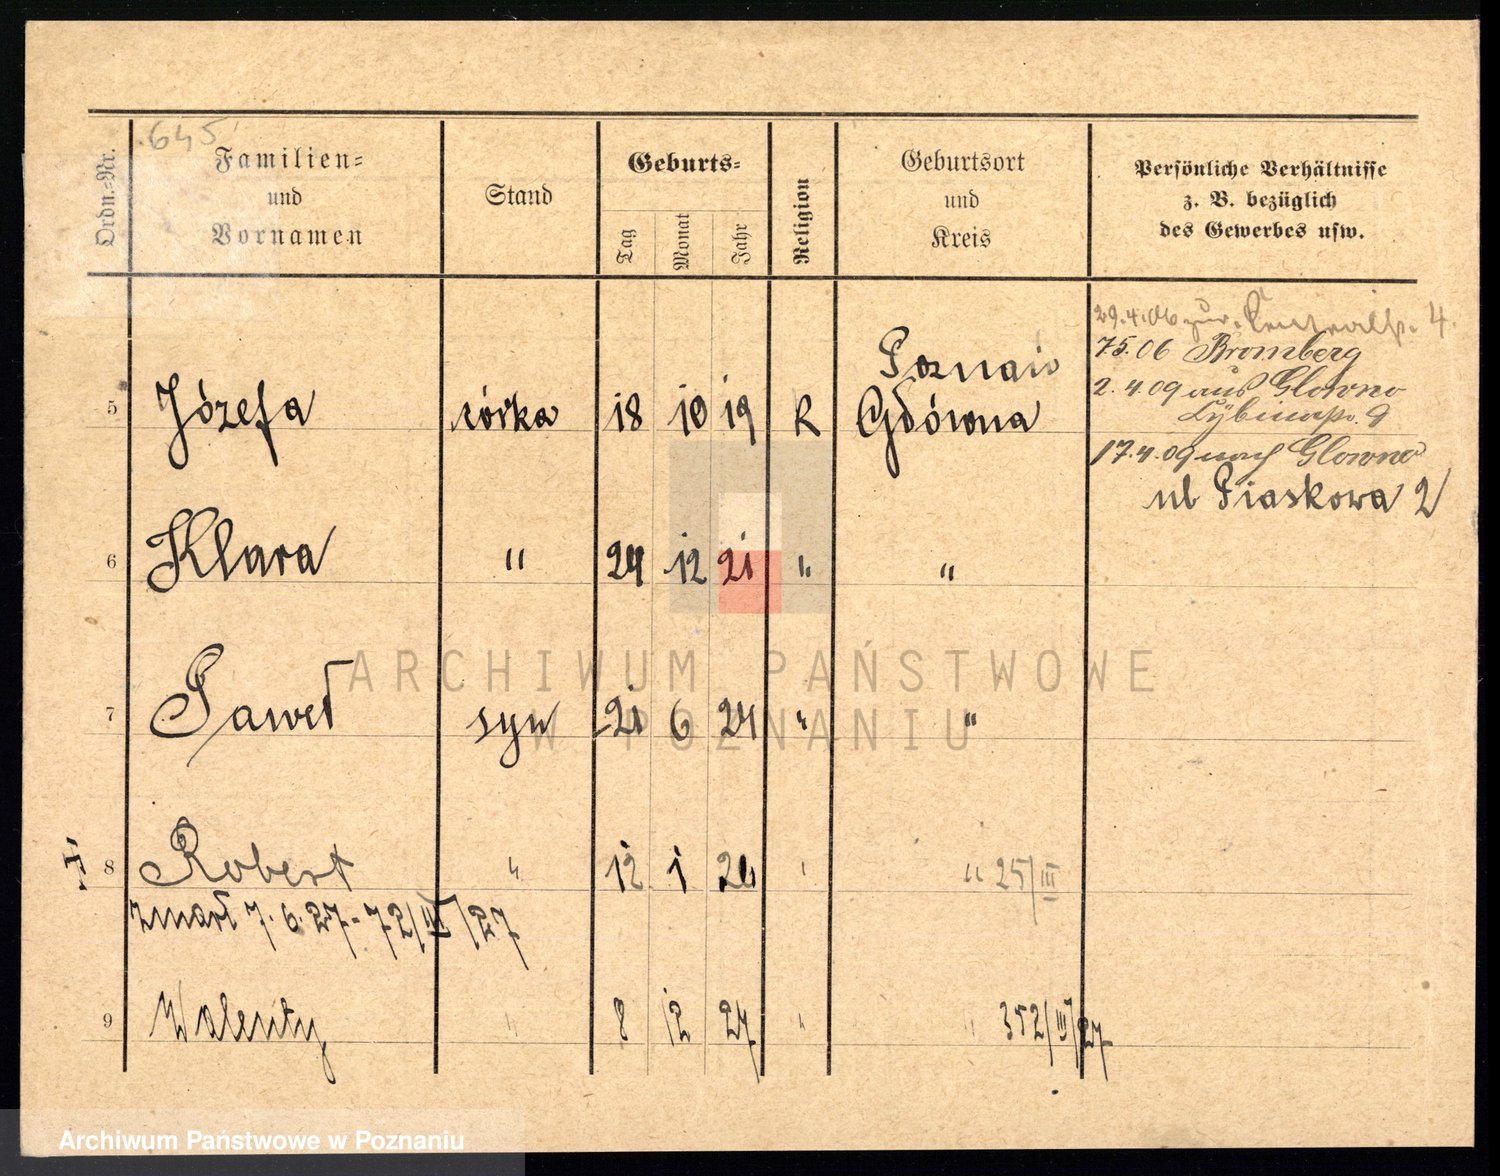 645
Ordn.-Nr.
Familien-
und
Vornamen
Stand
Geburts-
Tag
Monat
Jahr
Religion
Geburtsort
und
Kreis
Persönliche Verhältnisse
z. B. bezüglich
des Gewerbes usw.
29.4.06 zur. 4.
7.5.06 Bromberg
2.4.09 aus Glowno
9
17.4.09 nach Glowno
ul Piaskowa 2
Poznań
5 Józefa córka 18 10 19 R Główna
6 Klara " 24 12 21 " "
7 Paweł syn 21 6 24 " "
8 Robert " 12 1 26 " " 25/III
zmarł 7.6.27 - 72/III/27
9 Walenty " 8 12 27 " " 352/III/27
ARCHIWUM PAŃSTWOWE
W POZNANIU
Archiwum Państwowe w Poznaniu